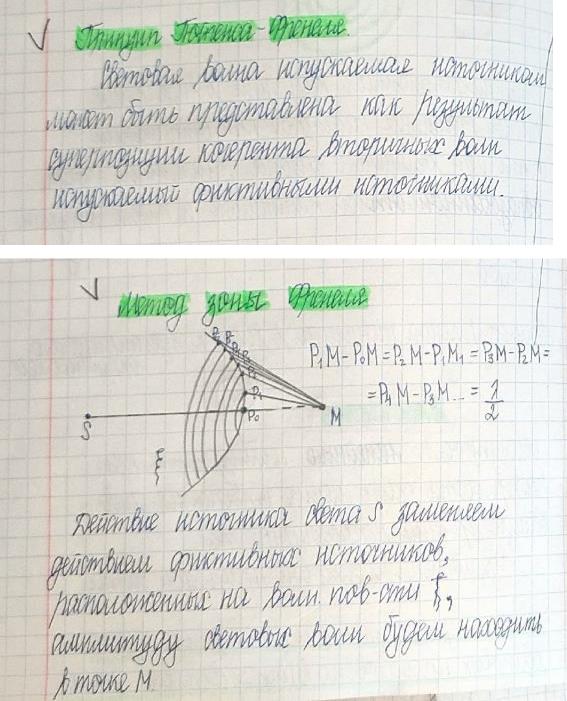 Принцип Гюйгенса-Френеля.
Световая волна испускаемая источником
может быть представлена как результат
суперпозиции когерента вторичных волн
испускаемый фиктивными источниками.
Метод зоны Френеля
P₁M-P₀M=P₂M-P₁M₁=P₃M-P₂M=
=P₄M-P₃M...=λ/2
P₁
P₀
M
S
ξ
Действие источника света S заменяем
действием фиктивных источников,
расположенных на волн. пов-сти ξ,
амплитуду световых волн будем находить
в точке M.